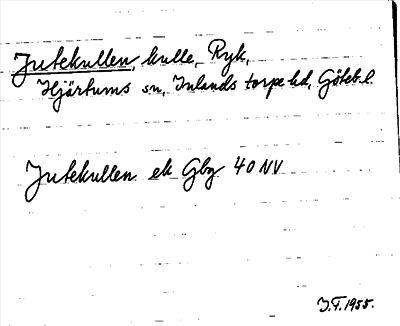 Jutekullen, kulle, Ryk,
Hjärtums sn, Inlands torpe hd, Göteb. l.
Jutekullen ek Gbg 40 NV
I.F. 1955.